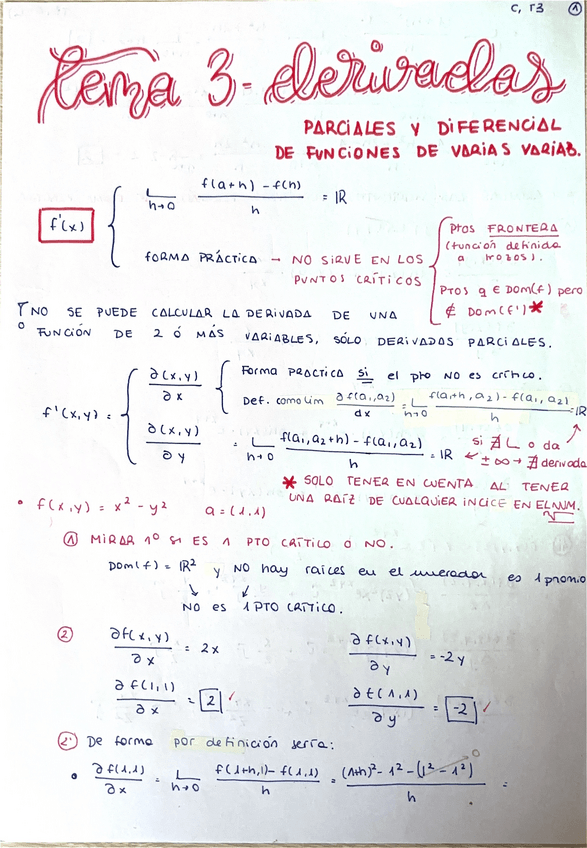 C, r3 ①
Tema 3- derivadas
PARCIALES Y DIFERENCIAL
DE FUNCIONES DE VARIAS VARIAB.
f'(x)
L h→0 f(a+h) - f(h) / h = IR
FORMA PRÁCTICA → NO SIRVE EN LOS
PUNTOS CRÍTICOS
Ptos FRONTERA
(función definida
a trozos).
Ptos q ∈ Dom(f) pero
∉ Dom(f') *
NO SE PUEDE CALCULAR LA DERIVADA DE UNA
FUNCIÓN DE 2 Ó MÁS VARIABLES, SÓLO DERIVADAS PARCIALES.
f'(x,y) =
∂(x,y) / ∂x
Forma PRACTICA si el pto NO es crítico.
Def. como Lim ∂f(a1,a2) / dx = L h→0 f(a1+h, a2) - f(a1,a2) / h = IR
∂(x,y) / ∂y = L h→0 f(a1, a2+h) - f(a1,a2) / h = IR
si ∄ L o da
± ∞ → ∄ derivada
* SOLO TENER EN CUENTA AL TENER
UNA RAÍZ DE CUALQUIER INCICE EN EL NUM.
• f(x,y) = x² - y² a = (1,1)
① MIRAR 1º SI ES 1 PTO CRÍTICO O NO.
Dom(f) = IR² y NO hay raíces en el numerador es 1
NO es 1 PTO CRITICO.
② ∂f(x,y) / ∂x = 2x ∂f(x,y) / ∂y = -2y
∂f(1,1) / ∂x = 2 ✓ ∂f(1,1) / ∂y = -2 ✓
②' De forma por definición sería:
• ∂f(1,1) / ∂x = L h→0 f(1+h,1) - f(1,1) / h = (1+h)² - 1² - (1² - 1²) / h = 0